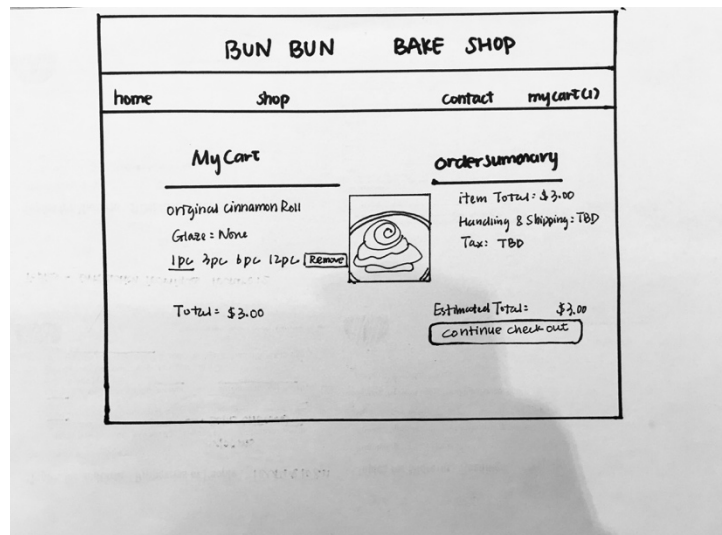 BUN BUN BAKE SHOP
home shop contact my cart (1)
My Cart
original cinnamon Roll
Glaze: None
1pc 3pc 6pc 12pc Remove
Total: $3.00
order summary
item Total: $3.00
Handling & Shipping: TBD
Tax: TBD
Estimated Total: $3.00
continue check out